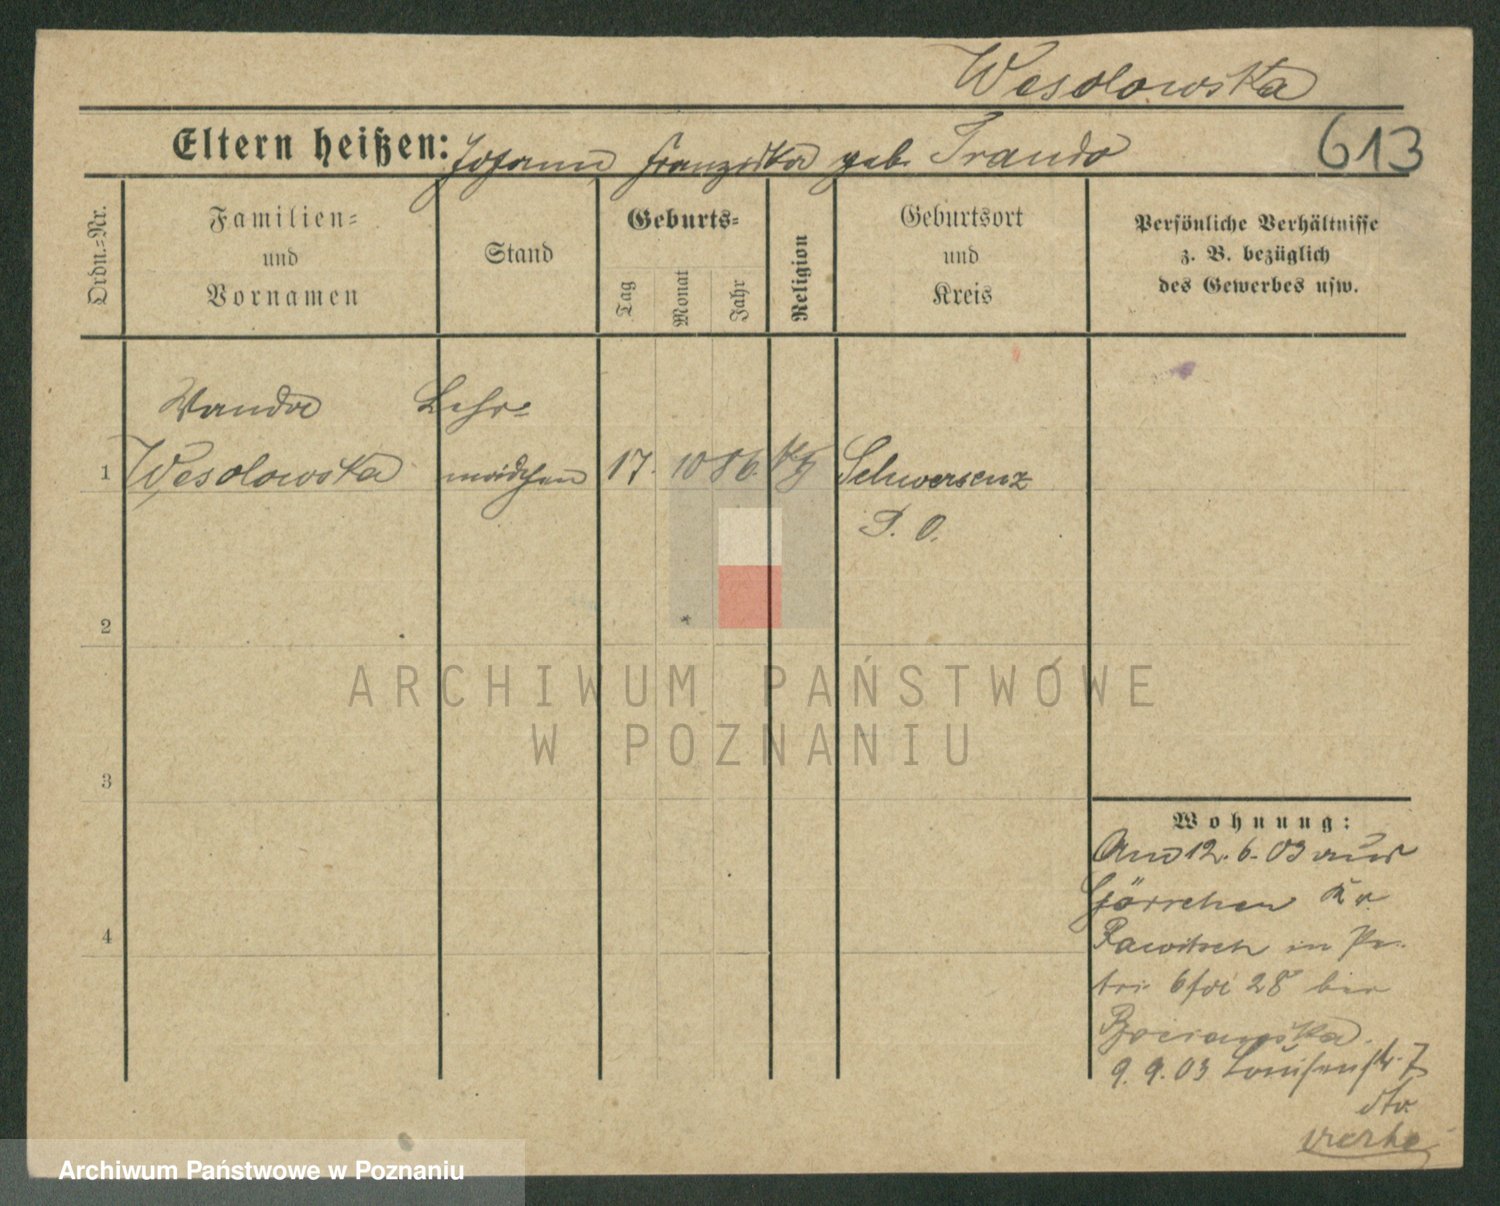 Wesolowska
Eltern heißen: Johann Franziska geb. Trando
613
Ordn.=Nr.
Familien=
und
Vornamen
Stand
Geburts=
Tag
Monat
Jahr
Religion
Geburtsort
und
Kreis
Persönliche Verhältnisse
z. B. bezüglich
des Gewerbes usw.
Wanda Lehr=
1 Wesolowska mädchen 17. 10 86. kth Schwersenz
P. O.
2
3
4
Wohnung:
Am 12. 6. 03 aus
Görrchen Kr
Rawitsch in
28 bei
9. 9. 03 Louisenstr. 7
dto.
ARCHIWUM PAŃSTWOWE
W POZNANIU
Archiwum Państwowe w Poznaniu